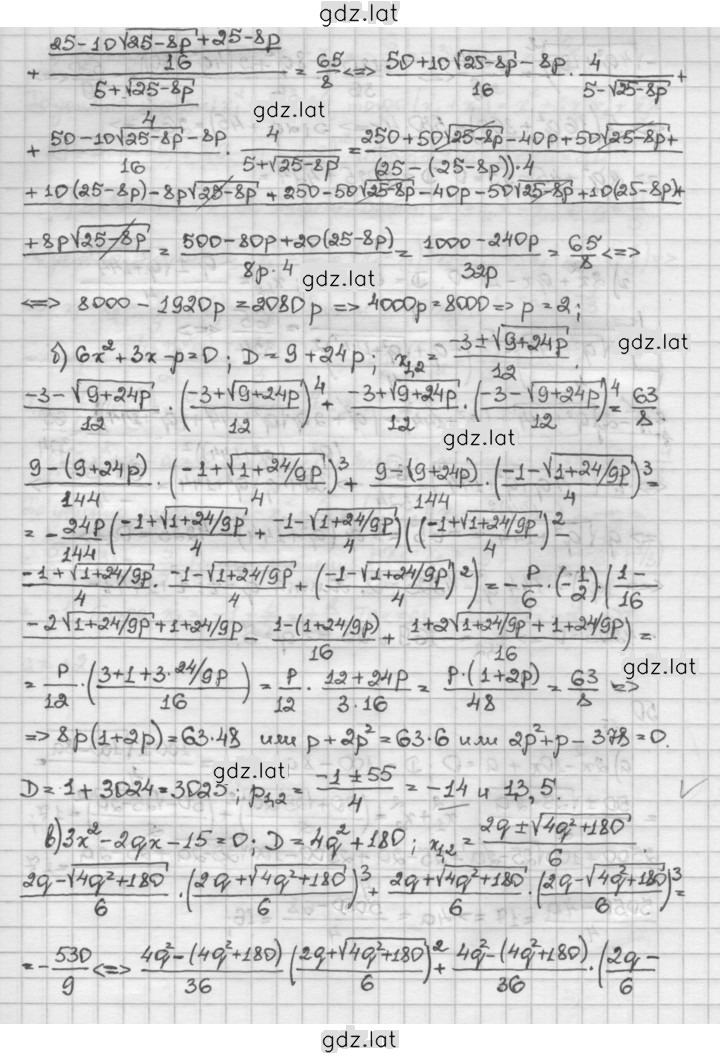 gdz.lat
+ ((25-10√(25-8p)+25-8p)/16)/((5+√(25-8p))/4) = 65/8 <=> (50+10√(25-8p)-8p)/16 · 4/(5-√(25-8p)) +
gdz.lat
+ (50-10√(25-8p)-8p)/16 · 4/(5+√(25-8p)) = (250+50√(25-8p)-40p+50√(25-8p)+)/((25-(25-8p))·4)
+10(25-8p)-8p√(25-8p)+250-50√(25-8p)-40p-50√(25-8p)+10(25-8p)+
+8p√(25-8p) = (500-80p+20(25-8p))/(8p·4) = (1000-240p)/32p = 65/8 <=>
gdz.lat
<=> 8000-1920p=2080p => 4000p=8000 => p=2;
б) 6x²+3x-p=0; D=9+24p; x₁,₂= (-3±√(9+24p))/12.
gdz.lat
(-3-√(9+24p))/12 · ((-3+√(9+24p))/12)⁴ + (-3+√(9+24p))/12 · ((-3-√(9+24p))/12)⁴ = 63/8.
gdz.lat
(9-(9+24p))/144 · ((-1+√(1+24/9p))/4)³ + (9-(9+24p))/144 · ((-1-√(1+24/9p))/4)³ =
= - 24p/144 ((-1+√(1+24/9p))/4 + (-1-√(1+24/9p))/4)(((-1+√(1+24/9p))/4)² -
(-1+√(1+24/9p))/4 · (-1-√(1+24/9p))/4 + ((-1-√(1+24/9p))/4)²) = - p/6 · (-1/2) · ((1-)/16
(-2√(1+24/9p)+1+24/9p) - (1-(1+24/9p))/16 + (1+2√(1+24/9p)+1+24/9p)/16) =
= p/12 · ((3+1+3·24/9p)/16) = p/12 · (12+24p)/(3·16) = (p·(1+2p))/48 = 63/8 =>
gdz.lat
=> 8p(1+2p)=63·48 или p+2p²=63·6 или 2p²+p-378=0.
gdz.lat
D=1+3024=3025; p₁,₂= (-1±55)/4 = -14 и 13,5.
в) 3x²-2qx-15=0; D=4q²+180; x₁,₂= (2q±√(4q²+180))/6.
(2q-√(4q²+180))/6 · ((2q+√(4q²+180))/6)³ + (2q+√(4q²+180))/6 · ((2q-√(4q²+180))/6)³ =
= - 530/9 <=> (4q²-(4q²+180))/36 ((2q+√(4q²+180))/6)² + (4q²-(4q²+180))/36 · ((2q-)/6
gdz.lat